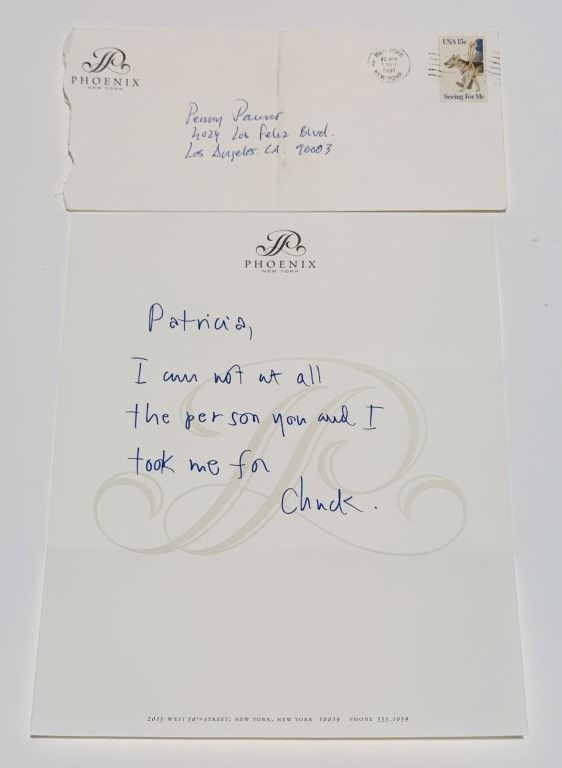 PHOENIX
NEW YORK
NEW YORK
1981
USA 15c
Seeing For Me
Penny
4024 Los Feliz Blvd.
Los Angeles. CA. 90003
PHOENIX
NEW YORK
Patricia,
I am not at all
the person you and I
took me for
Chuck.
2015 WEST 30TH STREET, NEW YORK, NEW YORK 10019 PHONE 555.1059